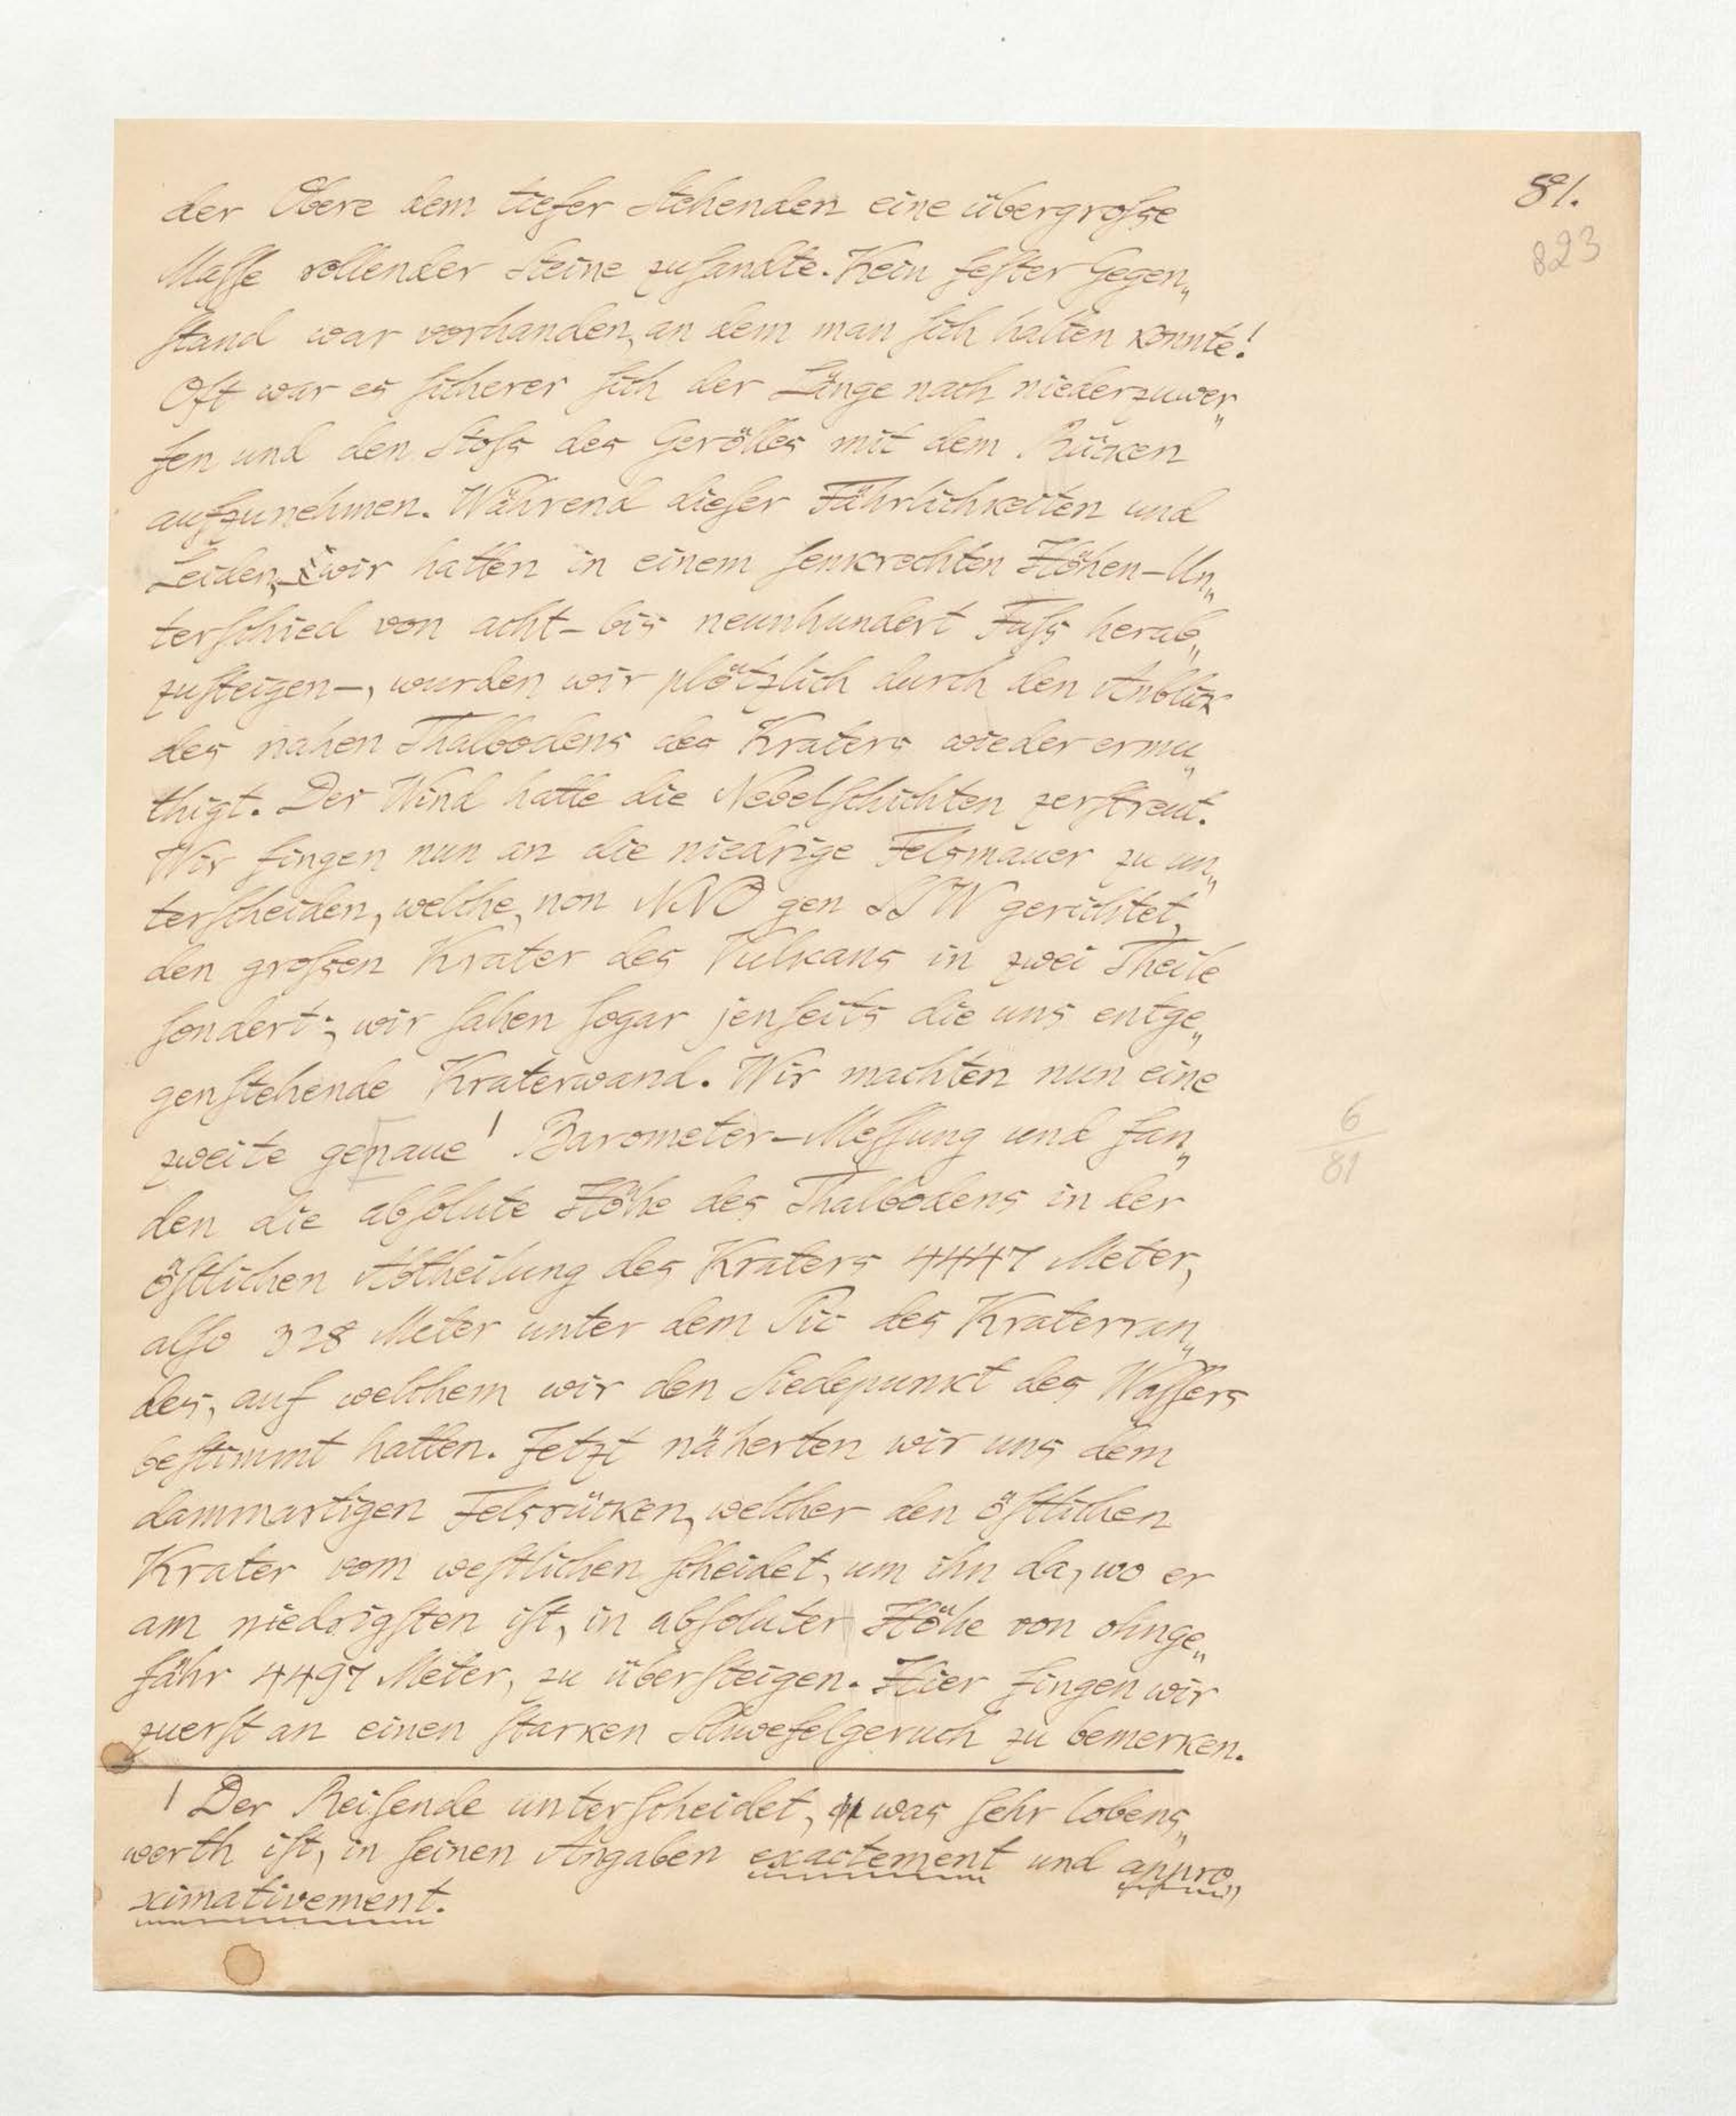 81.
823
der Obere dem tiefer Stehenden eine übergroſse
Maſſe rollender Steine zuſandte. Kein feſter Gegen„
ſtand war vorhanden, an dem man ſich halten konnte!
Oft war es ſicherer ſich der Länge nach niederzuwer„
fen und den Stoſs des Gerölles mit dem Rücken
aufzunehmen. Während dieſer Fährlichkeiten und
Leiden, wir hatten in einem ſenkrechten Höhen-Un„
terſchied von acht- bis neunhundert Fuſs herab„
zuſteigen-, wurden wir plötzlich durch den Anblick
des nahen Thalbodens des Kraters wieder ermu„
thigt. Der Wind hatte die Nebelſchichten zerſtreut.
Wir fingen nun an die niedrige Felsmauer zu un„
terſcheiden, welche, non NNO gen SSW gerichtet,
den groſsen Krater des Vulkans in zwei Theile
ſondert; wir ſahen ſogar jenſeits die uns entge„
genſtehende Kraterwand. Wir machten nun eine
zweite genaue¹ Barometer-Meſſung und fan„
6
81
den die abſolute Höhe des Thalbodens in der
öſtlichen Abtheilung des Kraters 4447 Meter,
alſo 328 Meter unter dem Pic des Kraterran„
des, auf welchem wir den Siedepunkt des Waſſers
beſtimmt hatten. Jetzt näherten wir uns dem
dammartigen Felsrücken, welcher den öſtlichen
Krater vom weſtlichen ſcheidet, um ihn da, wo er
am niedrigſten iſt, in abſoluter Höhe von ohnge„
fähr 4497 Meter, zu überſteigen. Hier fingen wir
zuerſt an einen ſtarken Schwefelgeruch zu bemerken.
1 Der Reiſende unterſcheidet, was ſehr lobens„
werth iſt, in ſeinen Angaben exactement und appro„
ximativement.